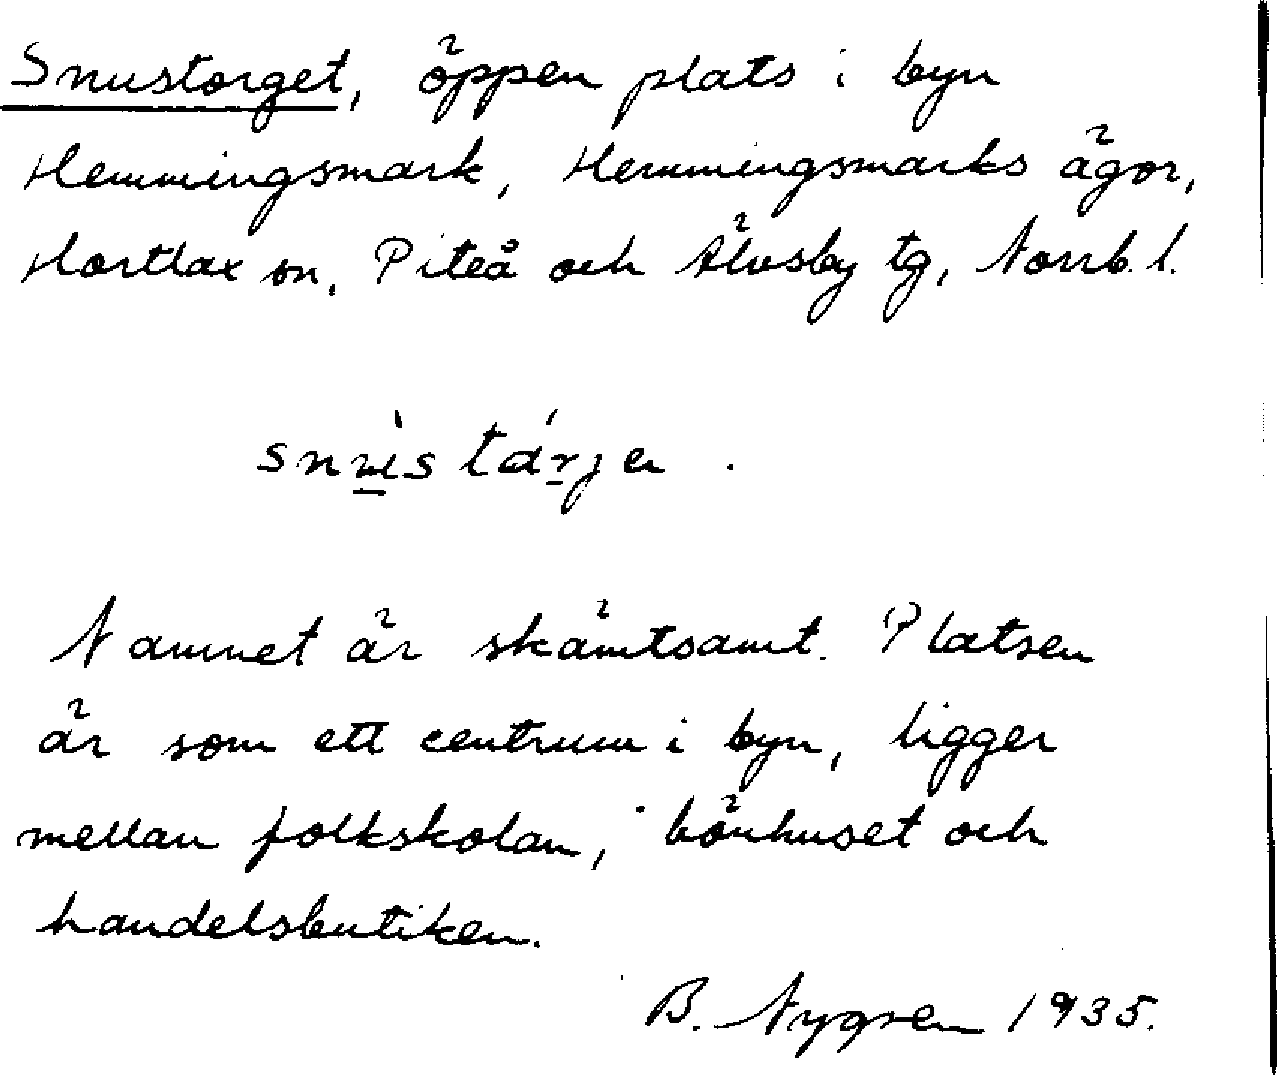 Snustorget, öppen plats i byn
Hemmingsmark, Hemmingsmarks ägor,
Hortlax sn, Piteå och Älvsby tg, Norrb. l.
snùstárjen.
Namnet är skämtsamt. Platsen
är som ett centrum i byn, ligger
mellan folkskolan, bönhuset och
handelsbutiken.
B. Nygren 1935.